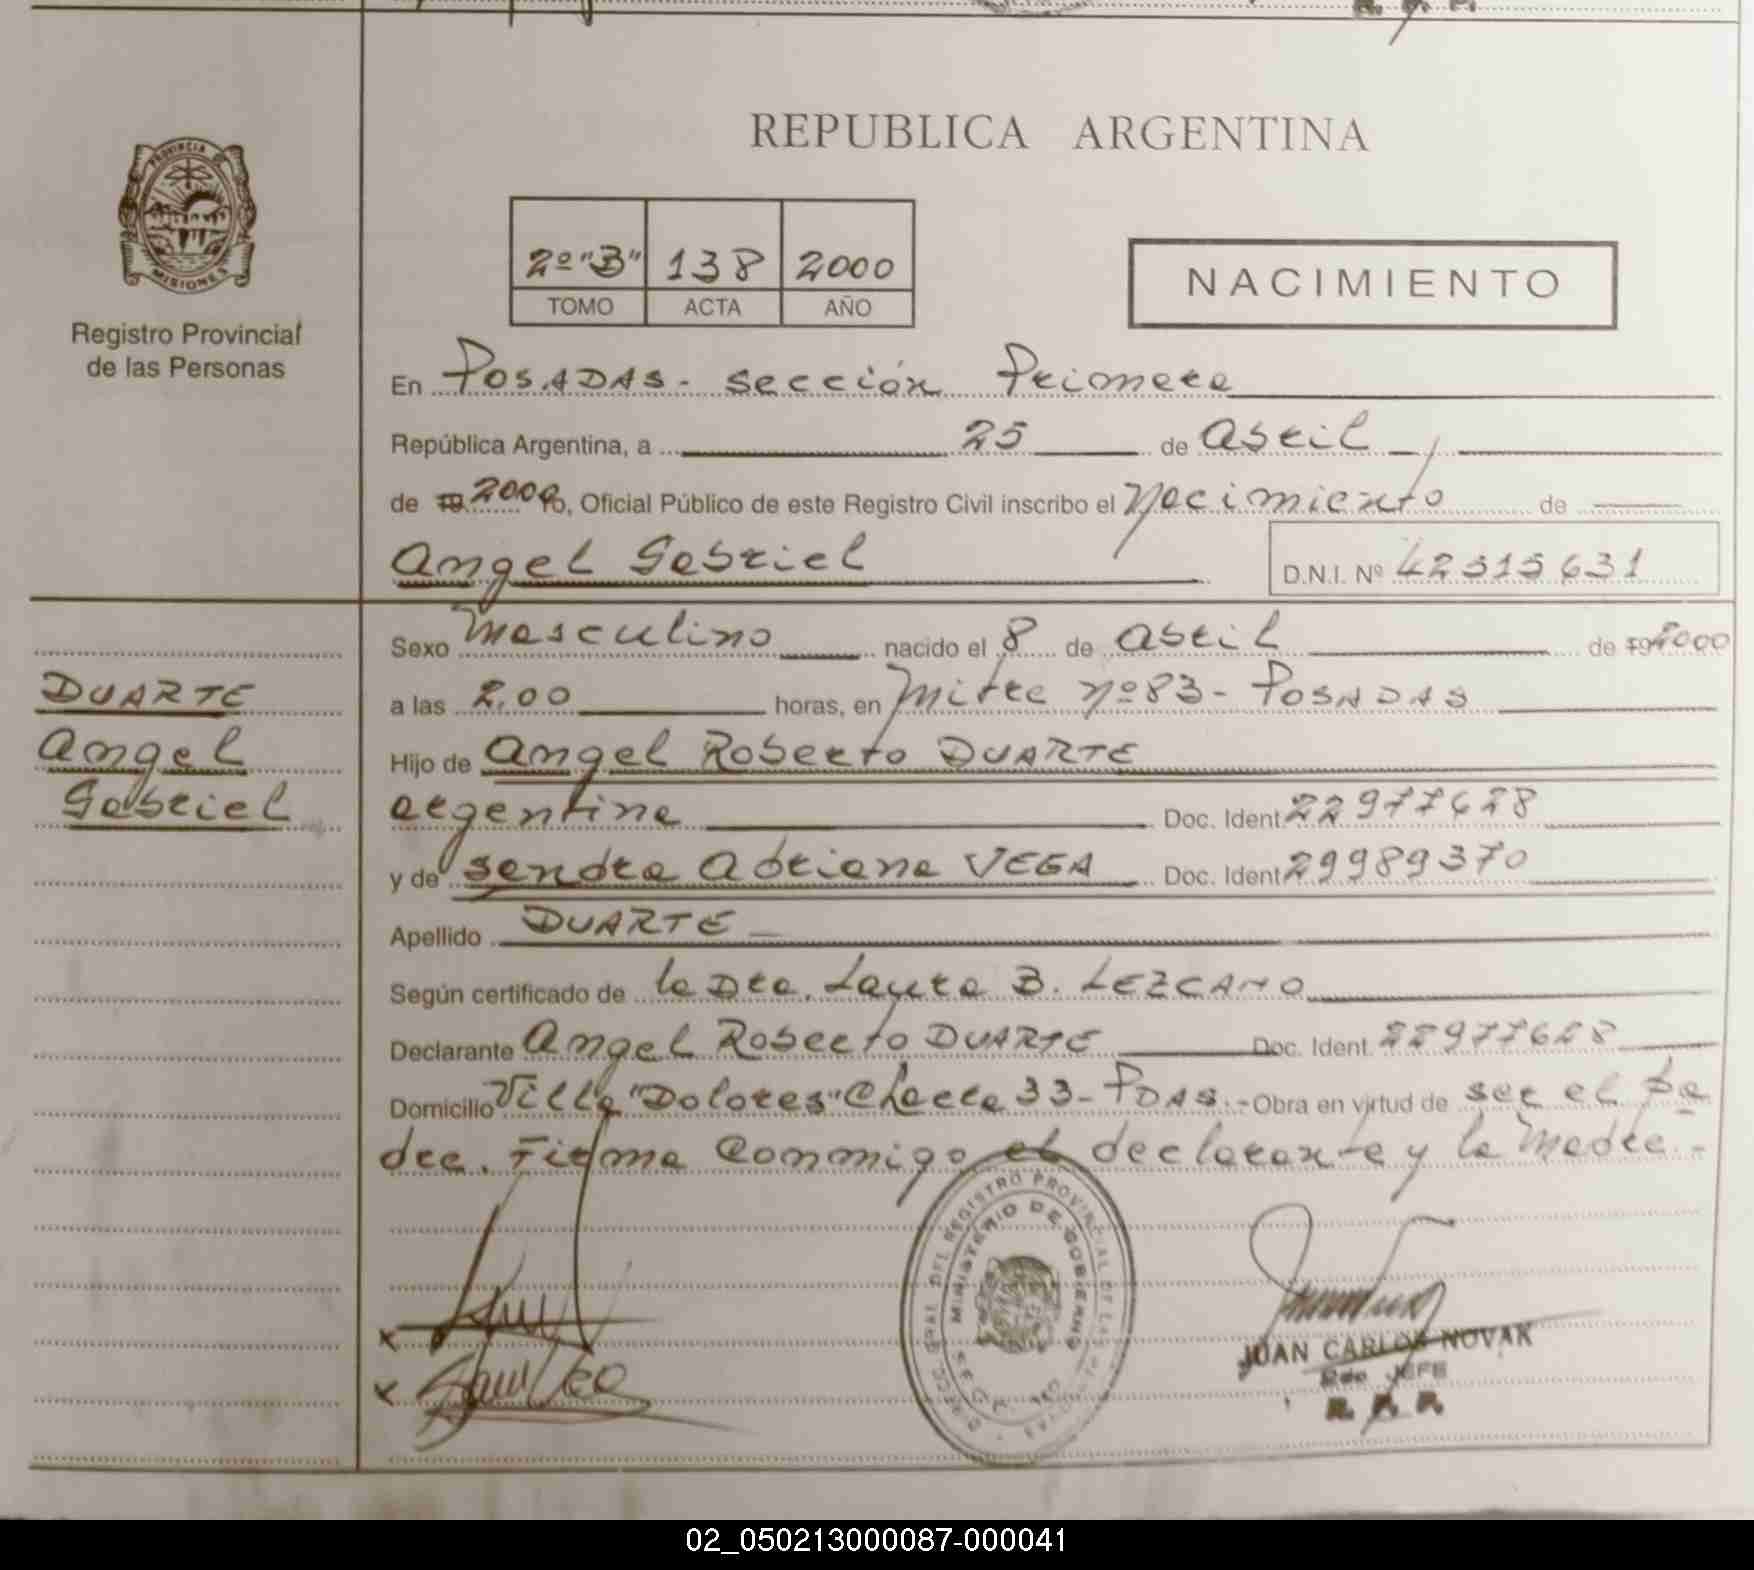 REPUBLICA ARGENTINA
PROVINCIA
MISIONES
Registro Provincial
de las Personas
2º "B" 138 2000
TOMO ACTA AÑO
NACIMIENTO
En POSADAS - sección Primera
República Argentina, a 25 de Abril
de 19 2000 Yo, Oficial Público de este Registro Civil inscribo el Nacimiento de
Angel Gabriel
D.N.I. Nº 42315631
Sexo Masculino nacido el 8 de Abril de 19 2000
DUARTE
Angel
Gabriel
a las 2,00 horas, en Mitre nº 83 - POSADAS
Hijo de Angel Roberto DUARTE
argentina Doc. Ident. 22977628
y de Sandra Adriana VEGA Doc. Ident. 29989370
Apellido DUARTE
Según certificado de la Dra. Laura B. LEZCANO
Declarante Angel Roberto DUARTE Doc. Ident. 22977628
Domicilio Villa "Dolores" Chacra 33 - PDAS. - Obra en virtud de ser el pa
dre. Firma conmigo el declarante y la madre. -
DEL REGISTRO PROVINCIAL DE LAS
MINISTERIO DE GOBIERNO
JUAN CARLOS NOVAK
JEFE
R. P. P.
02_050213000087-000041